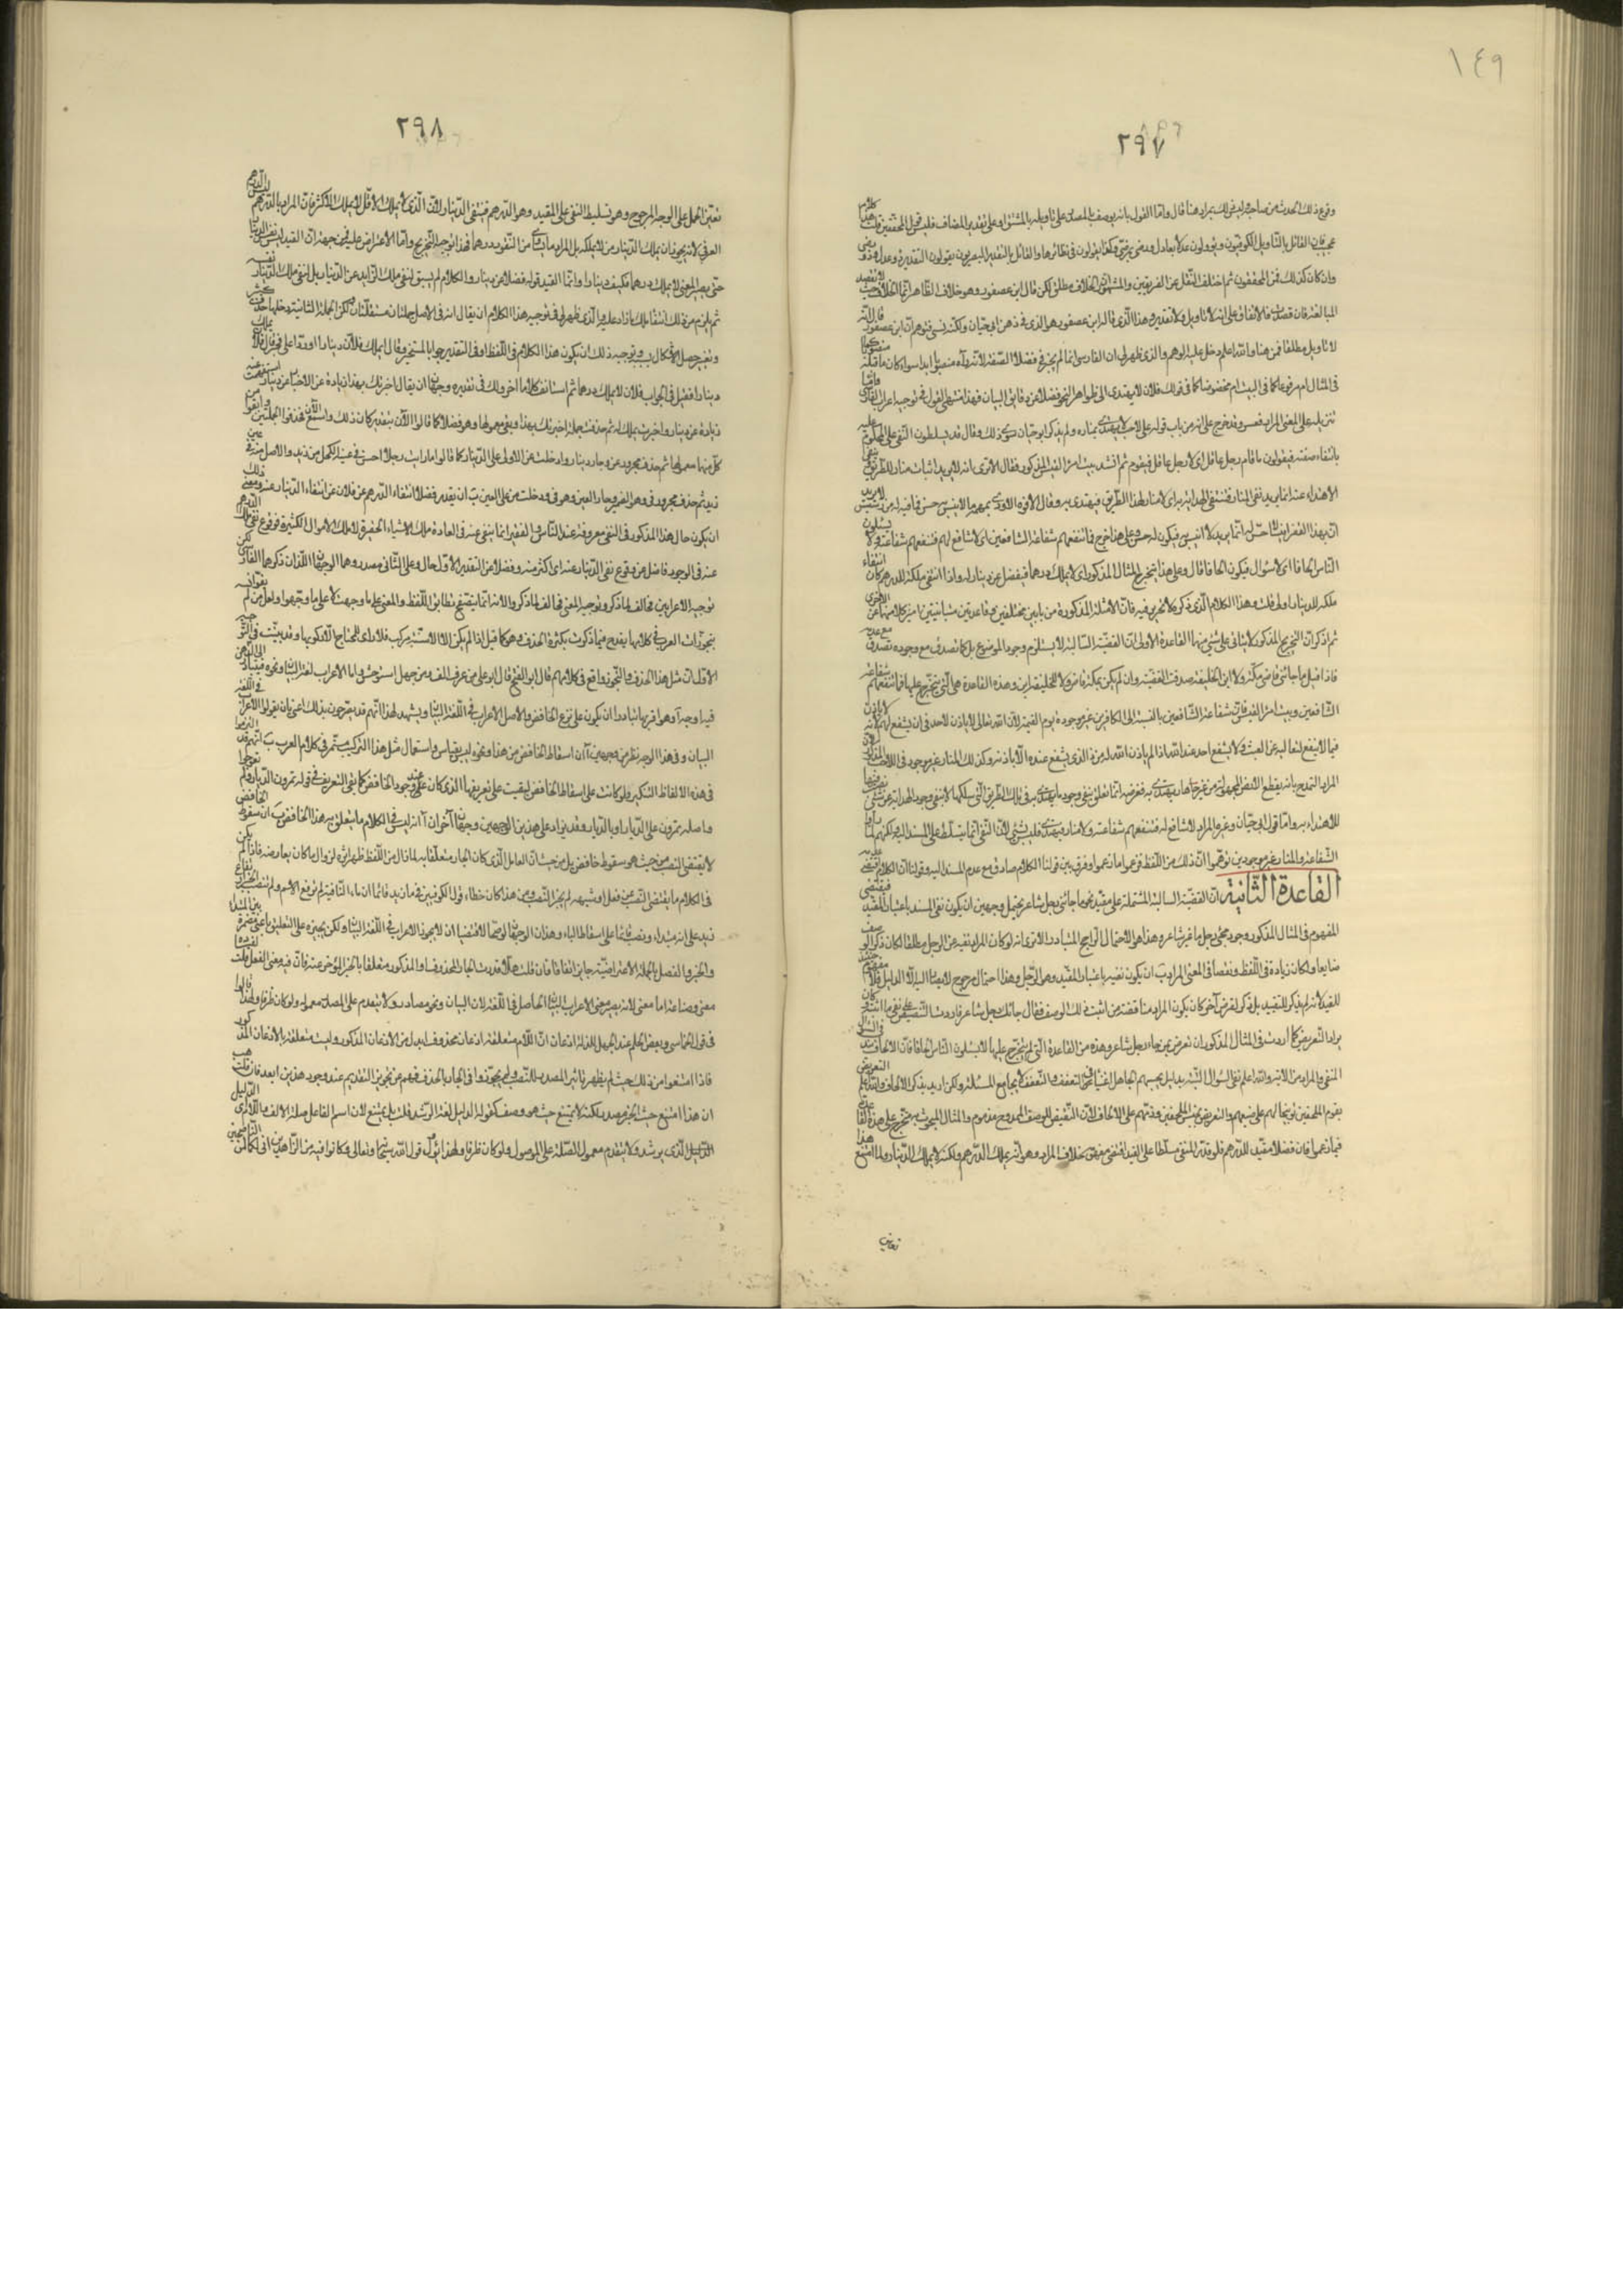 ١٤٩
٢٩٧
وقوع ذلك الحدث من صاحبه ليس ذلك بمراد هنا قال واما القول بانه يوصف بالمصدر على تاويله بالمشتق او على تقدير المضاف فليس قول المحققين قلت هذا كلام
عجيب فان القائل بالتاويل الكوفيون ويؤولون عدلا بعادل ورضى بمرضي وهكذا يقولون في نظائرها والقائل بالتقدير البصريون يقولون التقدير ذو عدل وذو رضى
وان كان كذلك فمن المحققون ثم اختلف النقل عن الفريقين والمشهور ان الخلاف مطلق لكن قال ابن عصفور وهو خلاف الظاهر انما الخلاف حيث لا تقصد
المبالغة فان قصدت فالاتفاق على انه لا تاويل ولا تقدير وهذا الذي قاله ابن عصفور هو الذي في ذهن ابي حيان ولكنه نسي فتوهم ان ابن عصفور قال انه
لا تاويل مطلقا فمن هنا والله اعلم دخل عليه الوهم والذي ظهر لي ان الفارسي انما لم يجز في فضلا الصفة لانه رآه منصوبا ابدا سواء كان ما قبله منصوبا كما
في المثال ام مرفوعا كما في البيت ام مخفوضا كما في قولك فلان لا يهتدي الى ظواهر النحو فضلا عن دقائق البيان فهذا منتهى القول في توجيه اعراب الفارسي واما
تنزيله على المعنى المراد فعسر وقد خرج على انه من باب قوله على لاحب لا يهتدى بمناره ولم يذكر ابو حيان سوى ذلك وقال قد يسلطون النفي على المحكوم عليه
بانتفاء صفته فيقولون ما قام رجل عاقل اي لا رجل عاقل فيقوم ثم انشد بيت امرئ القيس المذكور فقال الا ترى انه لا يريد اثبات منار للطريق وينفي
الاهتداء عنه انما يريد نفي المنار فتنتفي الهداية به اي لا منار لهذا الطريق فيهتدى به وقال الافوه الاودي بمهمه ما لانيس به حس فما فيه له من رسيس لا يريد
ان بهذا القفر انيسا لا حس له انما يريد لا انيس به فيكون له حس وعلى هذا خرج فما تنفعهم شفاعة الشافعين اي لا شافع لهم فتنفعهم شفاعته ولا يسئلون
الناس الحافا اي لا سؤال فيكون الحافا قال وعلى هذا يتخرج المثال المذكور اي لا يملك درهما فيفضل عن دينار له واذا انتفى ملكه للدرهم كان انتفاء
ملكه للدينار اولى قلت وهذا الكلام الذي ذكره لا تحرير فيه فان الامثلة المذكورة من بابين مختلفين وقاعدتين متباينتين تاميز كلا منهما عن الاخرى
ثم اذكر ان التخريج المذكور لا يتاتى على شيء منهما القاعدة الاولى ان القضية السالبة لا يستلزم وجود الموضوع بل كما تصدق مع وجوده تصدق مع عدمه
فاذا قيل ما جائني قاضي مكة ولا ابن الخليفة صدقت القضية وان لم يكن بمكة قاض ولا للخليفة ابن وهذه القاعدة هي التي يتخرج عليها فما تنفعهم شفاعة
الشافعين وبيت امرئ القيس فان شفاعة الشافعين بالنسبة الى الكافرين غير موجودة يوم القيمة لان الله تعالى لا ياذن لاحد في ان يشفع لهم لانه لا ياذن
فيما لا ينفع لتعاليه عن العبث ولا يشفع احد عند الله اذا لم ياذن الله له من ذا الذي يشفع عنده الا باذنه وكذلك المنار غير موجود في اللاحب المذكور لان
المراد التمدح بانه يقطع الارض المجهولة من غير هاد يهتدى به فغرضه انما تعلق بنفي وجود ما يهتدى به في تلك الطريق التي سلكها لا بنفي وجود الهداية عن شيء نصب فيها
للاهتداء به واما قول ابي حيان وغيره المراد لا شافع له فتنفعهم شفاعته ولا منار فيهتدى به فليس بشيء لان النفي انما يتسلط على المسند اليه لكنهم لما راوا
الشفاعة والمنار غير موجودين توهموا ان ذلك من اللفظ فزعموا ما زعموا وفرق بين قولنا الكلام صادق مع عدم المسند اليه وقولنا ان الكلام اقتضى عدمه
القاعدة الثانية ان القضية السالبة المشتملة على مقيد نحو ما جائني رجل شاعر يحتمل وجهين ان يكون نفي المسند باعتبار القيد فيقتضي
المفهوم في المثال المذكور وجود مجيء رجل ما غير شاعر وهذا هو الاحتمال الراجح المتبادر الا ترى انه لو كان المراد نفيه عن الرجل مطلقا لكان ذكر الوصف
ضايعا ولكان زيادة في اللفظ ونقصا في المعنى المراد ب ان يكون نفيه باعتبار المقيد وهو الرجل وهذا احتمال مرجوح لا يصار اليه الا لدليل فلا مفهوم حينئذ
للقيد لانه لم يذكر للتقييد بل ذكر لغرض آخر كان يكون المراد مناقضة من اثبت ذلك الوصف فقال جائك رجل شاعر فاردت التنصيص على نفي ما اثبته وكان
يراد التعريض كما اردت في المثال المذكور ان تعرض بمن جاءه رجل شاعر وهذه من القاعدة التي لم يتخرج عليها لا يسئلون الناس الحافا فان الالحاف قيد في السؤال
المنفي والمراد من الاية والله اعلم نفي السؤال البتة بدليل يحسبهم الجاهل اغنياء من التعفف والتعفف لا يجامع المسئلة ولكن اريد بذكر الالحاف والله اعلم التعريض
بقوم الملحفين توبيخا لهم على صنيعهم والتعريض بجنس الملحفين وذمهم على الالحاف لان النقيض للوصف الممدوح مذموم والمثال المبحوث فيه متخرج على هذه القاعدة
فيما زعموا فان فضلا مقيد للدرهم فلو قدر النفي مسلطا على القيد اقتضى مفهومه خلاف المراد وهو انه يملك الدرهم ولكنه لا يملك الدينار ولما امتنع هذا
تعين
٢٩٨
تعين الحمل على الوجه المرجوح وهو تسليط النفي على المقيد وهو الدرهم فينتفي الدينار لان الذي لا يملك الاقل لا يملك الاكثر فان المراد بالدرهم ليس الدرهم
العرفي لانه يجوز ان يملك الدينار من لا يملكه بل المراد ما يساوي من النقود درهما فهذا توجيه التخريج واما الاعتراض عليه فمن جهة ان القيد ليس نفس الدينار
حتى يصير المعنى لا يملك درهما فكيف دينارا وانما القيد قوله فضلا عن دينار والكلام لم يسبق لنفي ملك الزايد عن الدينار بل لنفي ملك الدينار نفسه
ثم يلزم من ذلك انتفاء ملك ما زاد عليه والذي ظهر لي في توجيه هذا الكلام ان يقال انه في الاصل جملتان مستقلتان ولكن الجملة الثانية دخلها حذف كثير
وتغيير حصل الاشكال بسببه وتوجيه ذلك ان يكون هذا الكلام في اللفظ او في التقدير جوابا لمستخبر وقال ايملك فلان دينارا او ردا على مخبر قال فلان يملك
دينارا فقيل في الجواب فلان لا يملك درهما ثم استانف كلاما آخر ولك في تقديره وجهان ان يقال اخبرتك بهذا زيادة عن الاخبار عن دينار استفهمت عنه
زيادة عن دينار واخبرت بملكه له ثم حذفت جملة اخبرتك بهذا وبقي معمولها وهو فضلا كما قالوا الآن بتقدير كان ذلك واسمع الآن فحذفوا الجملتين وابقوا من
كل منهما معمولها ثم حذف مجرور عن وجار دينار وادخلت عن الاولى على الدينار كما قالوا ما رايت رجلا احسن في عينه الكحل من زيد والاصل منه في عين
زيد ثم حذف مجرور في وهو الضمير وجار العين وهو في ودخلت من على العين ب ان يقدر فضلا انتفاء الدرهم عن فلان عن انتفاء الدينار عنه ومعنى ذلك
ان يكون حال هذا المذكور في النفي معروفة عند الناس والفقير انما ينفى عنه في العادة ملك الاشياء الحقيرة لا ملك الاموال الكثيرة فوقوع نفي ملك الدرهم
عنه في الوجود فاضل عن وقوع نفي الدينار عنه اي اكثر منه وفضلا عن التقدير الاول حال وعلى الثاني مصدر وهما الوجهان اللذان ذكرهما الفارسي لكن
توجيه الاعرابين مخالف لما ذكر وتوجيه المعنى مخالف لما ذكروا لانه انما يتضح تطابق اللفظ والمعنى على ما وجهت لا على ما وجهوا ولعل من لم يقو انسه
بتجوزات العرب في كلامها يقدح فيما ذكرت بكثرة الحذف وهو كما قيل اذا لم يكن الا الاسنة مركب فلا راي للمحتاج الا ركوبها وقد بينت في التوجيه
الاول ان مثل هذا الحذف والتجوز واقع في كلامهم قال ابو الفتح قال ابو علي من عرف الف ومن جهل استوحش واما الاعراب لغة البيان ونحوه فيتبادر الى الذهن
فيه اوجه آ وهو اقربها تبادرا ان يكون على نزع الخافض والاصل الاعراب في اللغة البيان ويشهد لهذا انهم قد يصرحون بذلك اعني بان يقولوا الاعراب في اللغة
البيان وفي هذا الوجه نظر من وجهين آ ان اسقاط الخافض من هذا ونحوه ليس بقياس واستعمال مثل هذا التركيب مستمر في كلام العرب ب انهم قد التزموا
في هذه الالفاظ التنكير ولو كانت على اسقاط الخافض لبقيت على تعريفها الذي كان عند وجود الخافض كما بقي التعريف في قوله تمرون الديار ولم تعوجوا
واصله تمرون على الديار او بالديار وقد يزاد على هذين الوجهين وجهان آخران آ انه ليس في الكلام ما يتعلق به هذا الخافض ب ان سقوط الخافض
لا يقتضي النصب من حيث هو سقوط خافض بل من حيث ان العامل الذي كان الجار متعلقا به لما زال من اللفظ ظهر اثره لزوال ما كان يعارضه فاذا لم يكن
في الكلام ما يقتضي النصب من فعل او شبهه لم يجز النصب ومن هذا كان خطاء قول الكوفيين في ما زيد قائما ان ما النافية لم ترفع الاسم ولم تنصب الخبر بل ارتفاع
زيد على انه مبتداء ونصب قائما على اسقاط الباء وهذان الوجهان لو صحا لاقتضيا ان لا يجوز الاعراب في اللغة البيان ولكن يجيزه على التعليق باعني مضمرة بين المبتدا
والخبر والفصل بالجملة الاعتراضية جايز اتفاقا فان قلت هلا قدرت الجار المحذوف او المذكور متعلقا بالخبر المؤخر عنه فان فيه معنى الفعل قلت لفساده
معنى وصناعة اما معنى فلانه يصير معنى الاعراب البيان الحاصل في اللغة لان البيان ونحوه مصادر ولا يتقدم على المصدر معموله ولو كان ظرفا ولهذا قالوا
في قول الحماسي وبعض الحلم عند الجهل للذلة اذعان ان اللام متعلقة باذعان محذوف ابدل من الاذعان المذكور وليست متعلقة بالاذعان المذكور
فاذا امتنعوا من ذلك حيث لم يظهر تاثير المصدر للنصب ولم يجوزوا في الجار بالحذف فهم عن تجويز التقديم عند وجود هذين ابعد فان قلت هب
ان هذا امتنع حيث الخبر مصدر لكنه لا يمتنع حيث هو وصف كقولك الدليل لغة المرشد قلت بل يمتنع لان اسم الفاعل صلة الالف واللام اي الدليل
الدليل الذي يرشد ولا يتقدم معمول الصلة على الموصول ولو كان ظرفا ولهذا يؤول قول الله سبحانه وتعالى وكانوا فيه من الزاهدين اني لكما لمن الناصحين